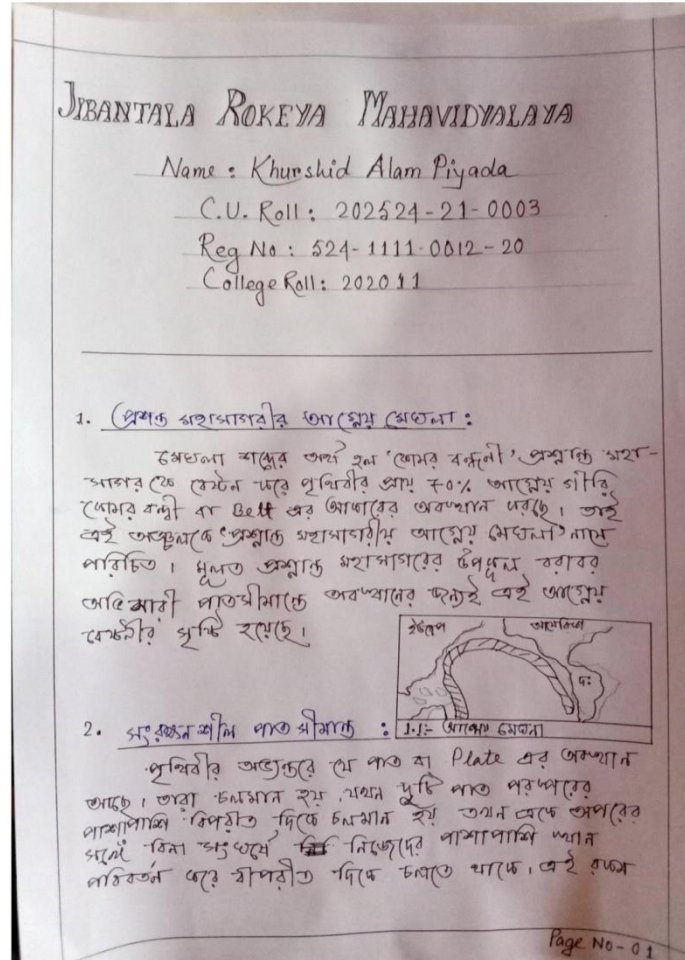 JIBANTALA ROKEYA MAHAVIDYALAYA
Name : Khurshid Alam Piyada
C.U. Roll : 202524-21-0003
Reg No : 524-1111-0012-20
College Roll : 202011
1. প্রশান্ত মহাসাগরীর আগ্নেয় মেখলা :
মেখলা শব্দের অর্থ হল 'কোমর বন্ধনী' প্রশান্ত মহা-
সাগর কে বেস্টন করে পৃথিবীর প্রায় ৭০% আগ্নেয় গীরি
কোমর বন্ধী বা Belt এর আকারের অবস্থান করছে। তাই
এই অঞ্চলকে 'প্রশান্ত মহাসাগরীয় আগ্নেয় মেখলা' নামে
পরিচিত। মূলত প্রশান্ত মহাসাগরের উপকূল বরাবর
অভিসারী পাতসীমান্তে অবস্থানের জন্যই এই আগ্নেয়
বেষ্টনীর সৃষ্টি হয়েছে।
ইউরোপ আমেরিকা
দঃ
1.1:- আগ্নেয় মেখলা
2. সংরক্ষনশীল পাত সীমান্ত :
পৃথিবীর অভ্যন্তরে যে পাত বা Plate এর অবস্থান
আছে। তারা চলমান হয়, যখন দুটি পাত পরস্পরের
পাশাপাশি বিপরীত দিকে চলমান হয় তখন একে অপরের
সঙ্গে বিনা সংঘর্ষে নিজেদের পাশাপাশি স্থান
পরিবর্তন করে বীপরীত দিকে চলতে থাকে। এই রকম
Page No - 01